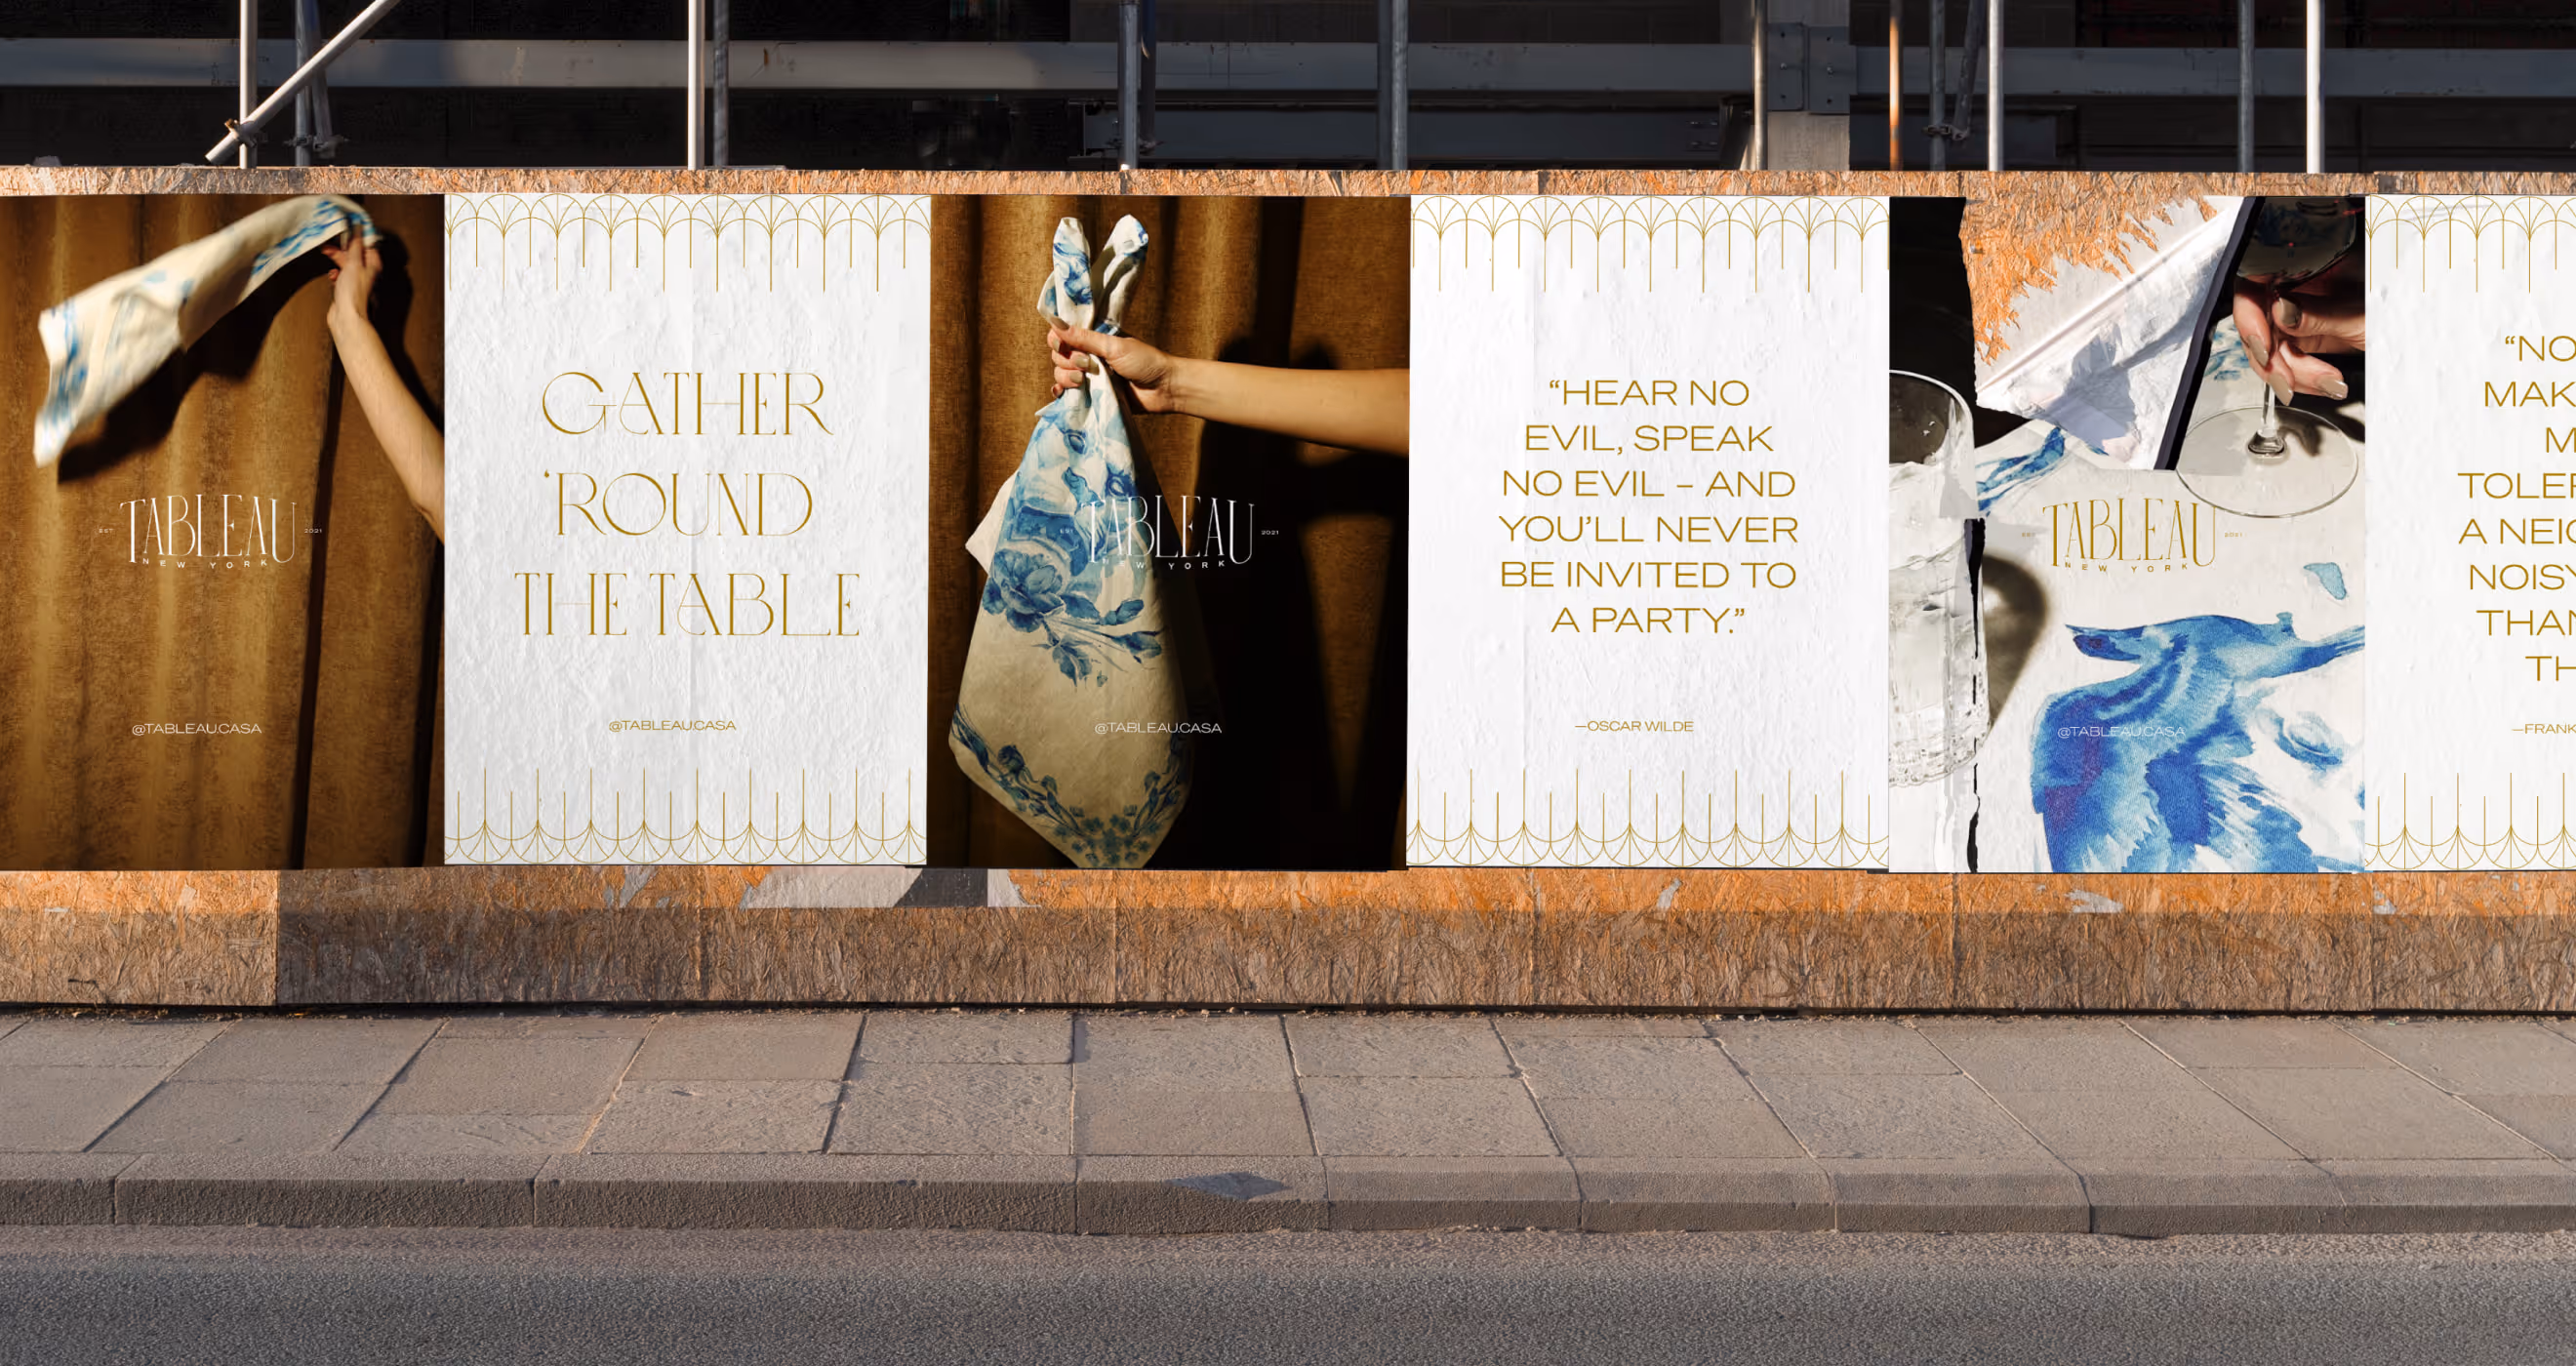 EST TABLEAU 2021
NEW YORK
@TABLEAU.CASA
GATHER
'ROUND
THE TABLE
@TABLEAU.CASA
EST TABLEAU 2021
NEW YORK
@TABLEAU.CASA
“HEAR NO
EVIL, SPEAK
NO EVIL – AND
YOU’LL NEVER
BE INVITED TO
A PARTY.”
—OSCAR WILDE
EST TABLEAU 2021
NEW YORK
@TABLEAU.CASA
“NO
MAK
M
TOLER
A NEIG
NOISY
THAN
TH
—FRANK